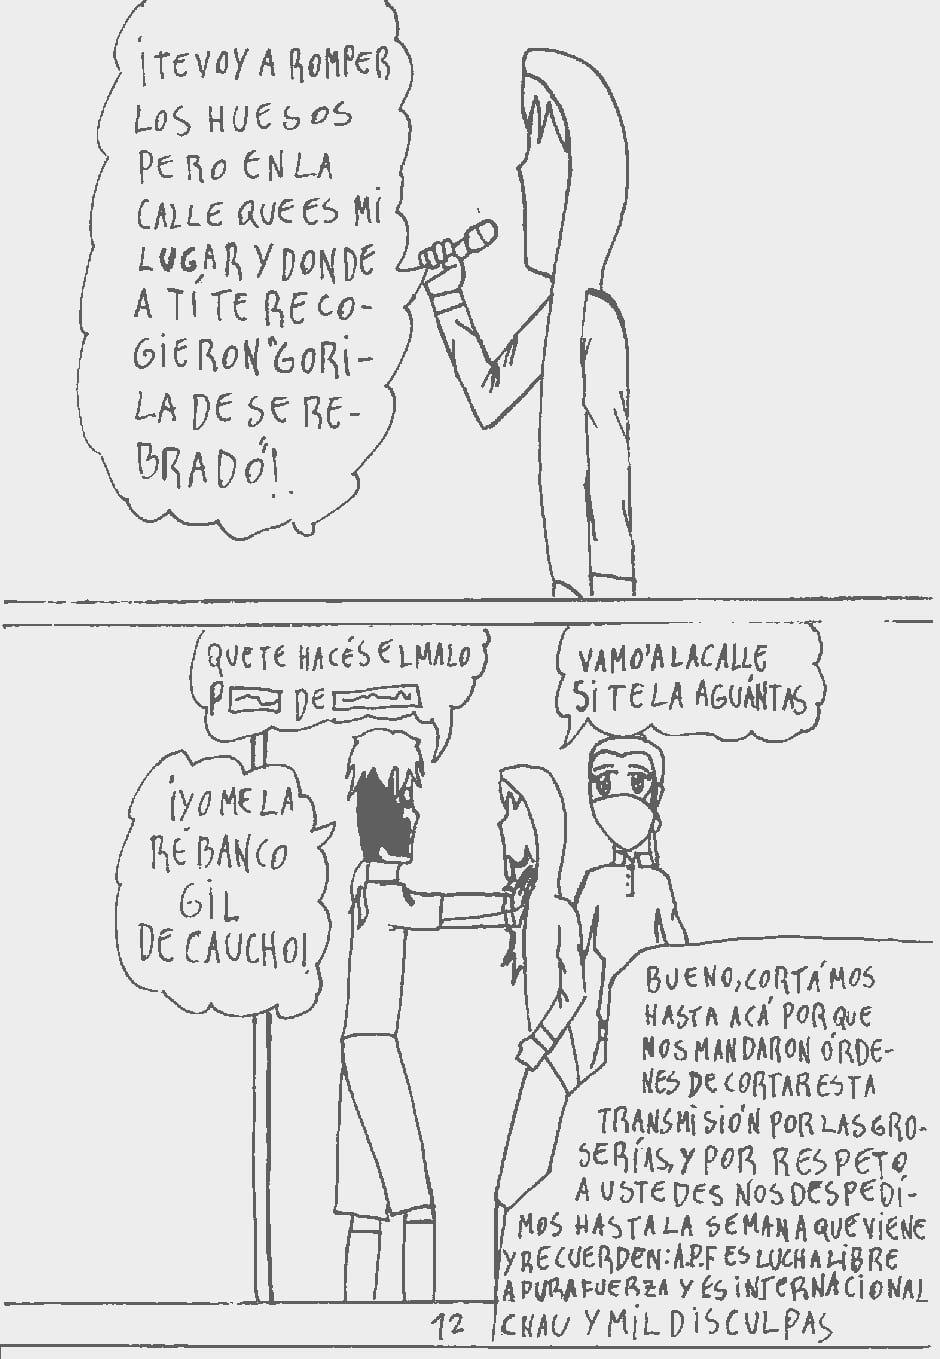 ¡TE VOY A ROMPER
LOS HUESOS
PERO EN LA
CALLE QUE ES MI
LUGAR Y DONDE
A TÍ TE RECO-
GIERON "GORI-
LA DE SERE-
BRADO"!.
QUE TE HACÉS EL MALO
P DE
VAMO'A LA CALLE
SI TE LA AGUÁNTAS
¡YO ME LA
RE BANCO
GIL
DE CAUCHO!
BUENO, CORTÁMOS
HASTA ACÁ PORQUE
NOS MANDARON ÓRDE-
NES DE CORTAR ESTA
TRANSMISIÓN POR LAS GRO-
SERÍAS, Y POR RESPETO
A USTEDES NOS DESPEDÍ-
MOS HASTA LA SEMANA QUE VIENE
Y RECUERDEN: A.P.F ES LUCHA LIBRE
A PURA FUERZA Y ES INTERNACIONAL
CHAU Y MIL DISCULPAS
12